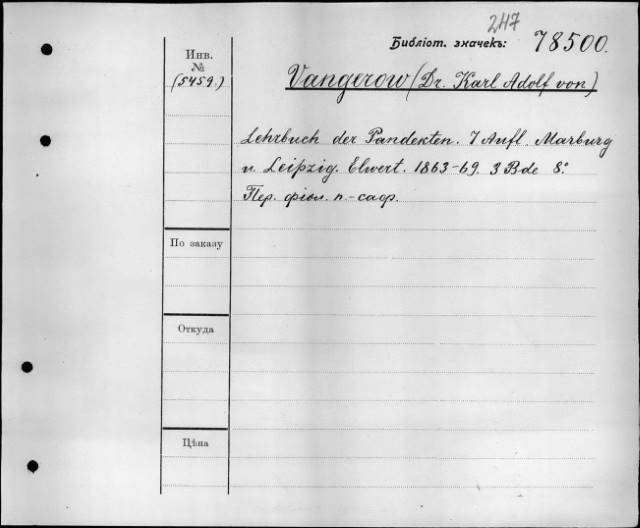 247
Библіот. значекъ: 78500.
Инв.
№
(5459.)
Vangerow (Dr. Karl Adolf von)
Lehrbuch der Pandekten. 7 Aufl. Marburg
u. Leipzig. Elwert. 1863-69. 3 Bde 8º.
Пер. фіол. п.-саф.
По заказу
Откуда
Цѣна